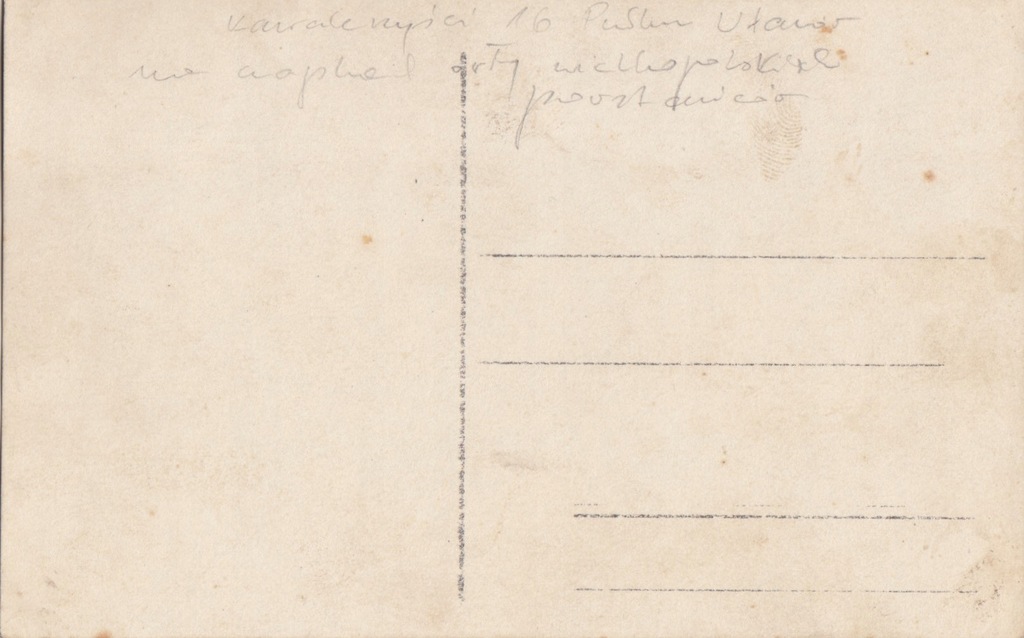 Kawalerzyści 16 Pułku Ułanów
na czapkach orły wielkopolskich
powstańców